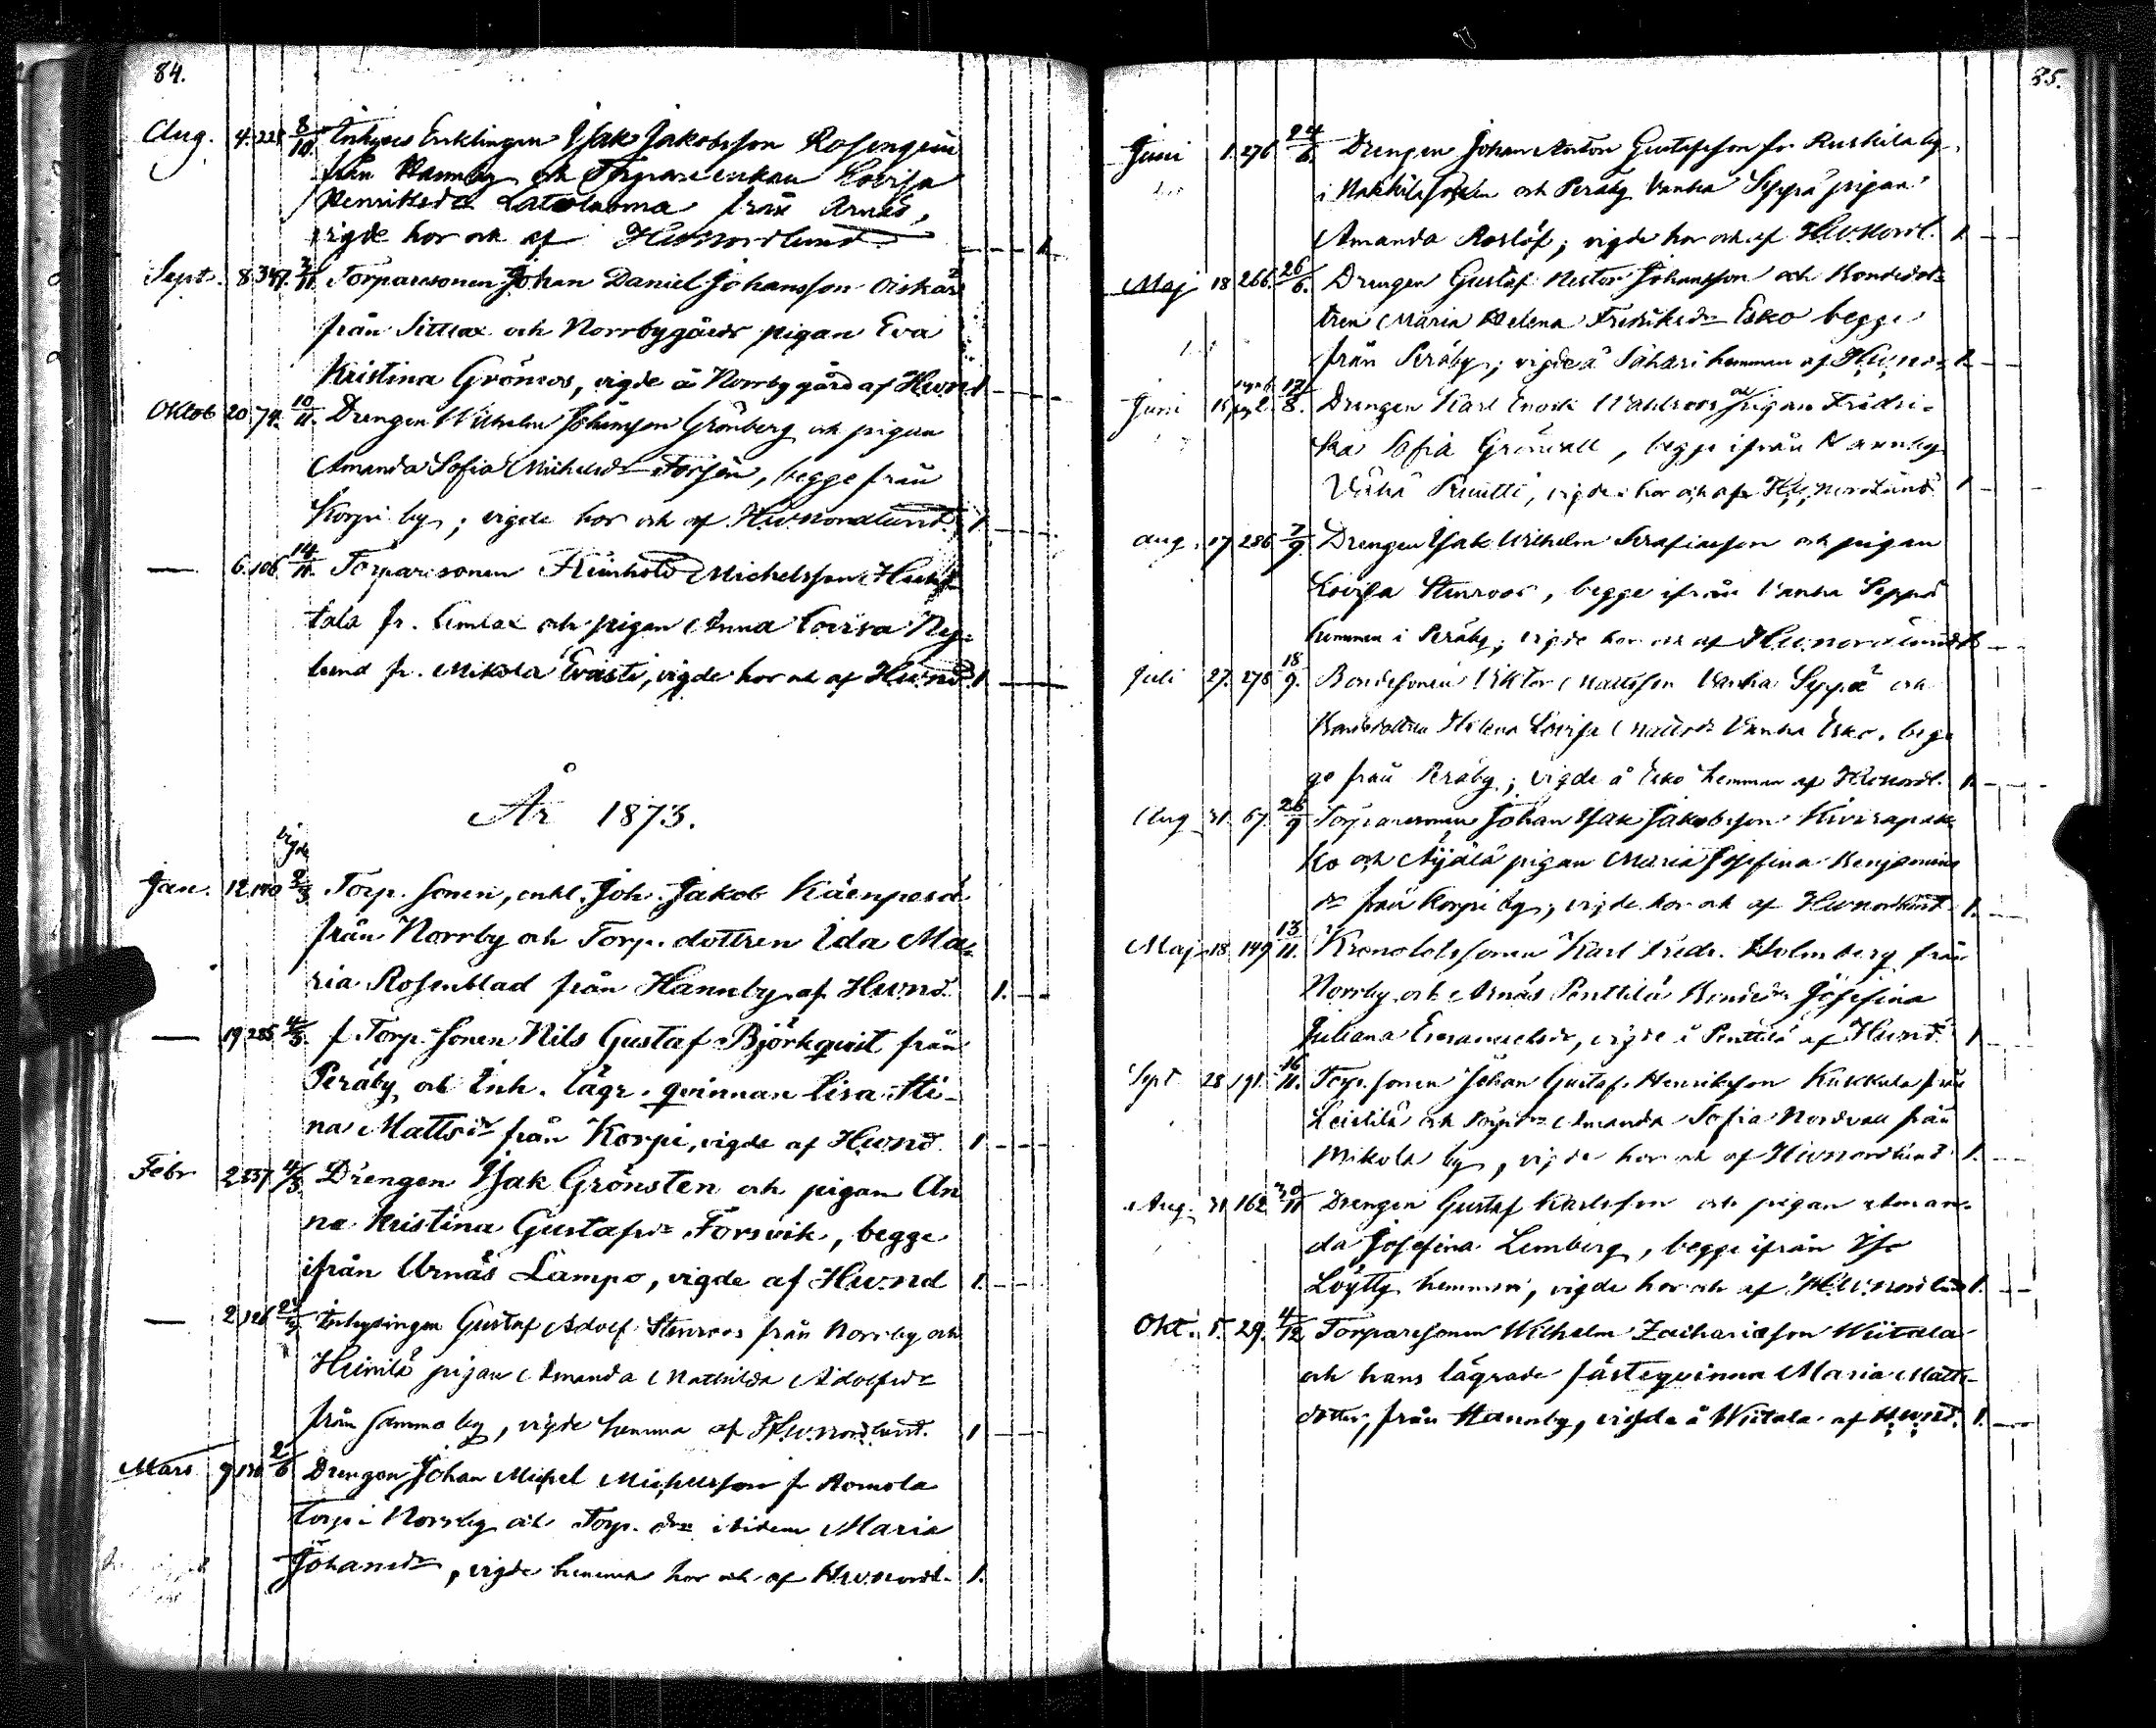 84.
Aug. 4. 228 8/10 Inhyses Enklingen Isak Jakobsson Rosengren
från Hannby och Torpare enkan Lovisa
Henriksd:r från Arnäs,
vigde hos och af HW Nordlund 1
Sept. 8. 347. 2/11 Torparesonen Johan Daniel Johansson Oiskar
från Sittlax och Norrbygårds pigan Eva
Kristina Grönroos, vigde å Norrby gård af HWNd 1
Oktob 20. 74. 10/11. Drengen Wilhelm Johansson Grönberg och pigan
Amanda Sofia Michelsd:r Forsén, begge från
Korpi by; vigde hos och af HW Nordlund. 1.
— 6. 106. 14/11. Torparesonen Reinhold Michelsson Huh-
tala fr. Lemlax och pigan Anna Lovisa Ny-
lund fr. Mikola Evästi, vigde hos och af HWNd. 1
År 1873.
vigde
Jan. 12. 170 2/3 Torp. sonen, enkl. Joh. Jakob Käenperä
från Norrby och Torp. dottren Ida Ma-
ria Rosenblad från Hannby af HWNd. 1.
— 19 285 4/3. f. Torp. sonen Nils Gustaf Björkqvist från
Peräby och Inh. lägr. qvinnan Lisa Sti-
na Mattsd:r från Korpi, vigde af HWNd. 1
Febr 2 337 4/3. Drengen Isak Grönsten och pigan An
na Kristina Gustafsd:r Forsvik, begge
ifrån Arnäs Lampo, vigde af HWNd 1.
— 2 126 Inhysingen Gustaf Adolf Stenroos från Norrby och
Heinilä pigan Amanda Mathilda Adolfsd:r
från samma by, vigde hemma af HW Nordlund. 1
Mars 9 170 2/6 Drengen Johan Mikel Michelsson fr. Aomola
torp i Norrby och Torp. d:r ibidem Maria
Johansd:r, vigde hemma hos och af HW Nordl. 1.
85.
Juni 1. 276 24/6. Drengen Johan Anton Gustafsson fr. Ruskila by
i Nakkila socken och Peräby Vanha Seppä pigan
Amanda Roslöf; vigde hos och af HW Nordl. 1
Maj 18 266. 26/6. Drengen Gustaf Nestor Johansson och Bondedot-
tren Maria Helena Fredriksd:r Esko begge
från Peräby; vigde å Sahari hemman af HWNd. 1.
Juni 15 17/8. Drengen Karl Enok Wahlroos och pigan Fredri-
ka Sofia Grönvall, begge ifrån Hannby
Vähä Pruutti, vigde hos och af HW Nordlund 1
Aug. 17 286 7/9. Drengen Isak Wilhelm Serafiasson och pigan
Lovisa Stenroos, begge ifrån Vanha Seppä
hemman i Peräby; vigde hos och af HW Nordlund 1
Juli 27. 278 18/9. Bondesonen Viktor Mattsson Vanha Seppä och
Bondedottren Helena Lovisa Mattsd:r Vanha Esko, beg-
ge från Peräby; vigde å Esko hemman af HW Nordl. 1.
Aug 31. 67. 26/9 Torparesonen Johan Isak Jakobsson Kivirapak-
ko och Äijälä pigan Maria Josefina Benjamins
d:r från Korpi by; vigde hos och af HW Nordlund 1.
Maj 18. 149 13/11. Kronolotssonen Karl Fredr. Holmberg från
Norrby och Arnäs Penttilä Bonded:r Josefina
Juliana Emanuelsd:r, vigde i Penttilä af HWNd. 1
Sept 28 191. 16/11. Torp. sonen Johan Gustaf Henriksson Kukkula från
Leistilä och Torpd:r Amanda Sofia Nordvall från
Mikola by, vigde hos och af HW Nordlund 1.
Aug. 31 162 30/11 Drengen Gustaf Karlsson och pigan Aman-
da Josefina Lemberg, begge ifrån Iso
Löytty hemman, vigde hos och af HW Nordlund 1.
Okt. 5. 29. 4/12 Torparesonen Wilhelm Zachariasson Wiitala
och hans lägrade fästeqvinna Maria Matts-
dotter, från Hannby, vigde å Wiitala af HWNd. 1.